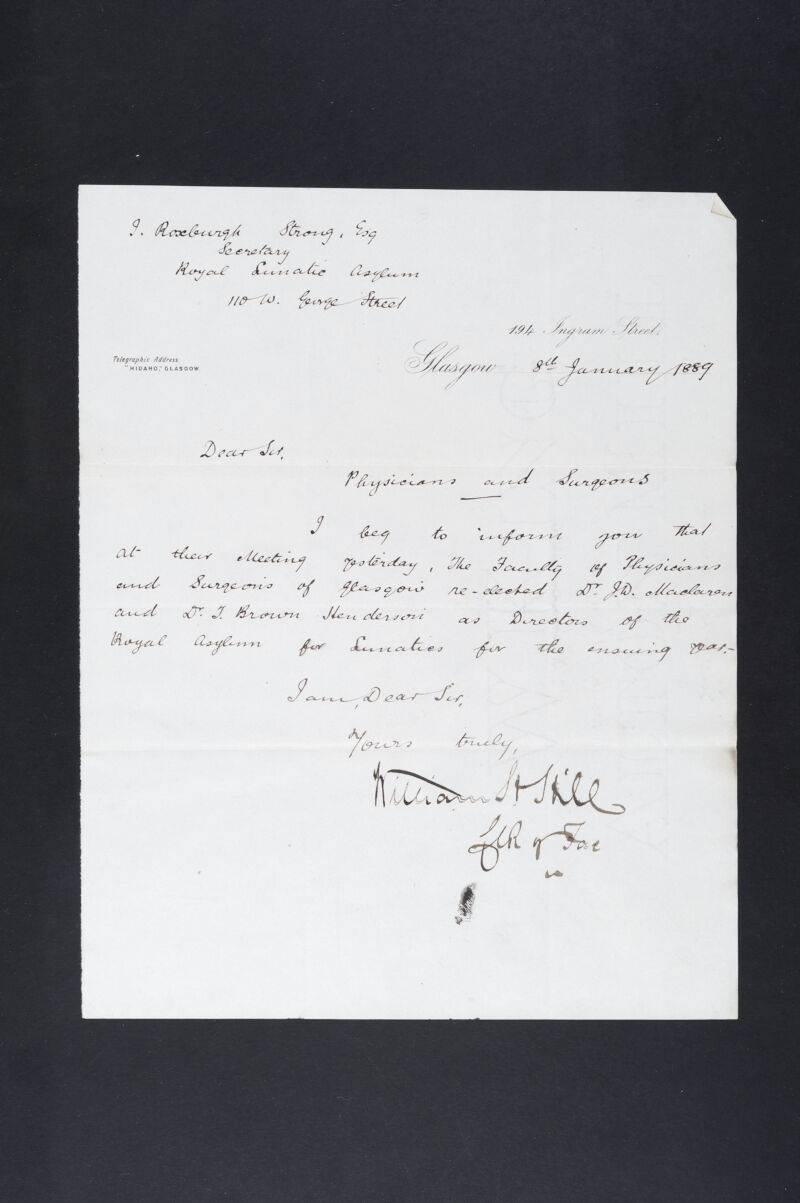 J. Roxburgh Strong, Esq
Secretary
Royal Lunatic Asylum
110 W. George Street
194 Ingram Street,
Telegraphic Address
"HIDAHO," GLASGOW.
Glasgow 8th January 1889
Dear Sir,
Physicians and Surgeons
I beg to inform you that
at their Meeting yesterday, The Faculty of Physicians
and Surgeons of Glasgow re-elected Dr. J.D. Maclaren
and Dr. T. Brown Henderson as Directors of the
Royal Asylum for Lunatics for the ensuing year.-
I am, Dear Sir,
Yours truly,
William H Hill
Clk of Fac